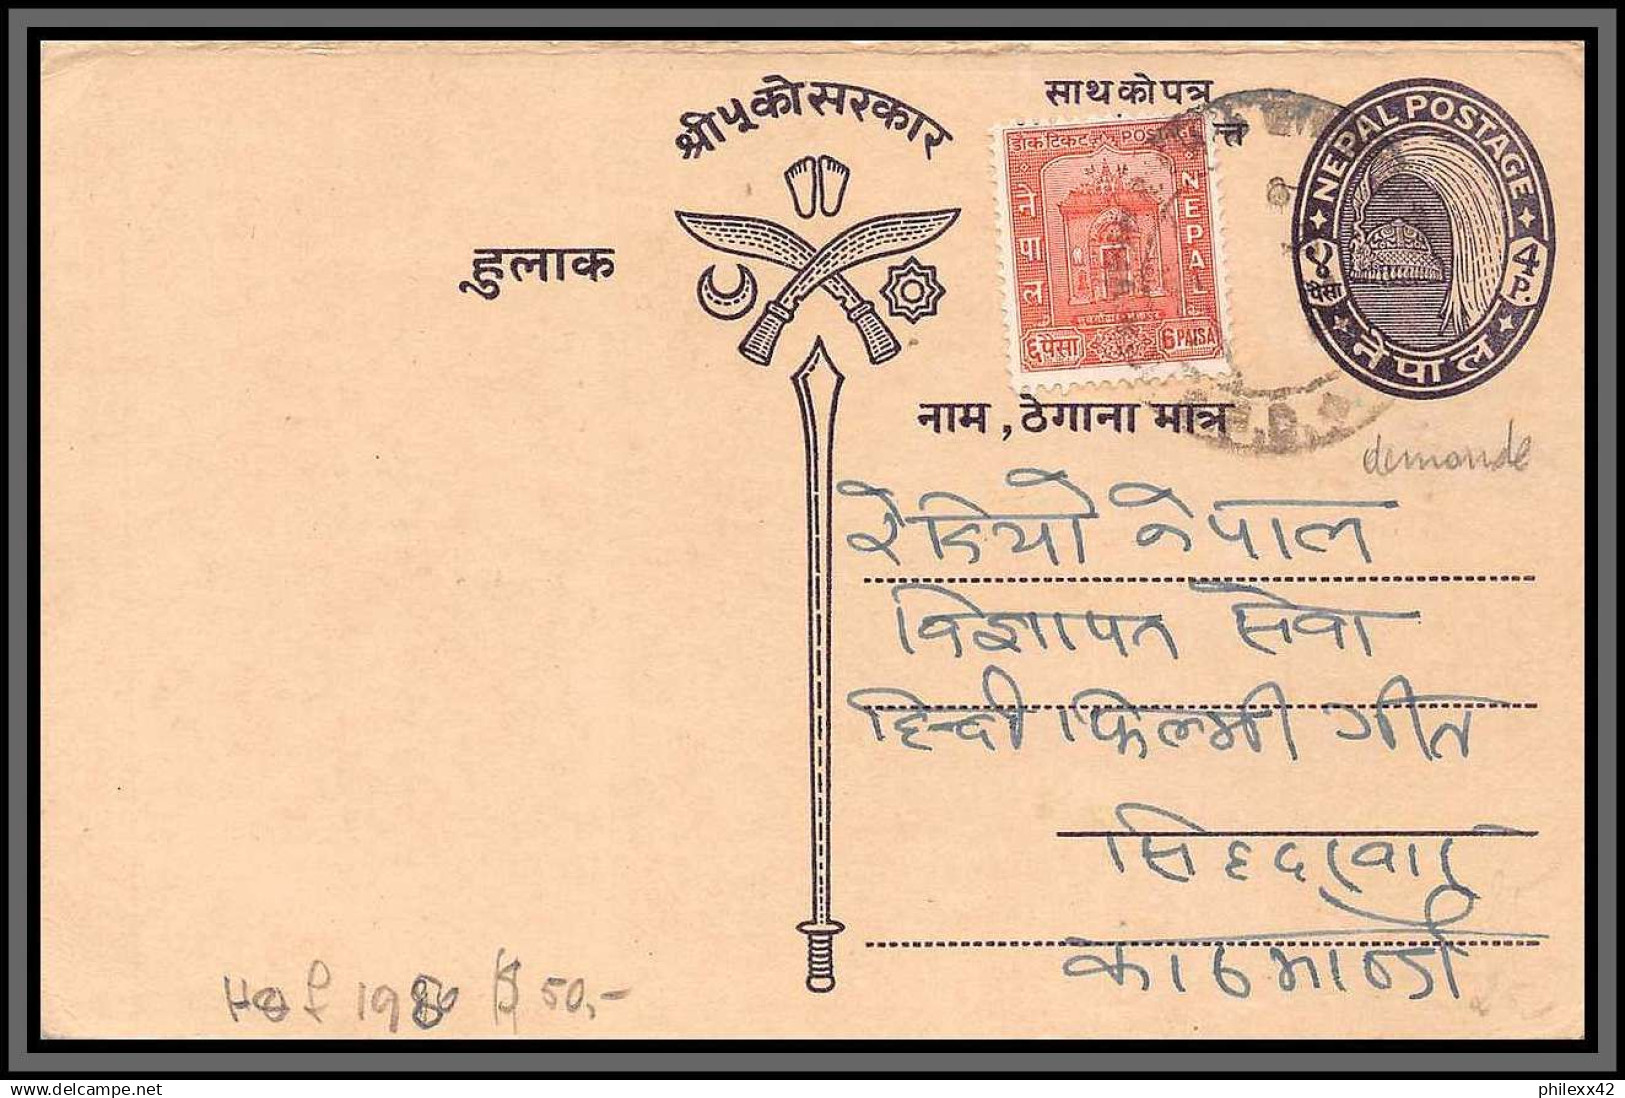 श्री ५ को सरकार
साथ को पत्र
हुलाक
डाक टिकट POSTAGE
नेपाल
NEPAL
६ पैसा 6 PAISA
NEPAL POSTAGE
४ पैसा 4 P.
नेपाल
नाम , ठेगाना मात्र
demande
रेडियो नेपाल
विज्ञापन सेवा
हिन्दी फिल्मी गीत
सिंहदरवार
काठमाण्डौ
1980 50,-
delcampe.net
philexx42